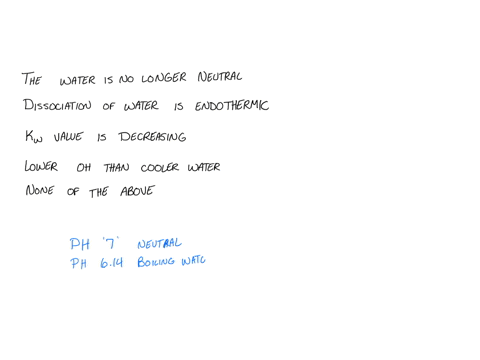 THE WATER IS NO LONGER NEUTRAL
DISSOCIATION OF WATER IS ENDOTHERMIC
KW VALUE IS DECREASING
LOWER OH THAN COOLER WATER
NONE OF THE ABOVE
PH "7" NEUTRAL
PH 6.14 BOILING WATC